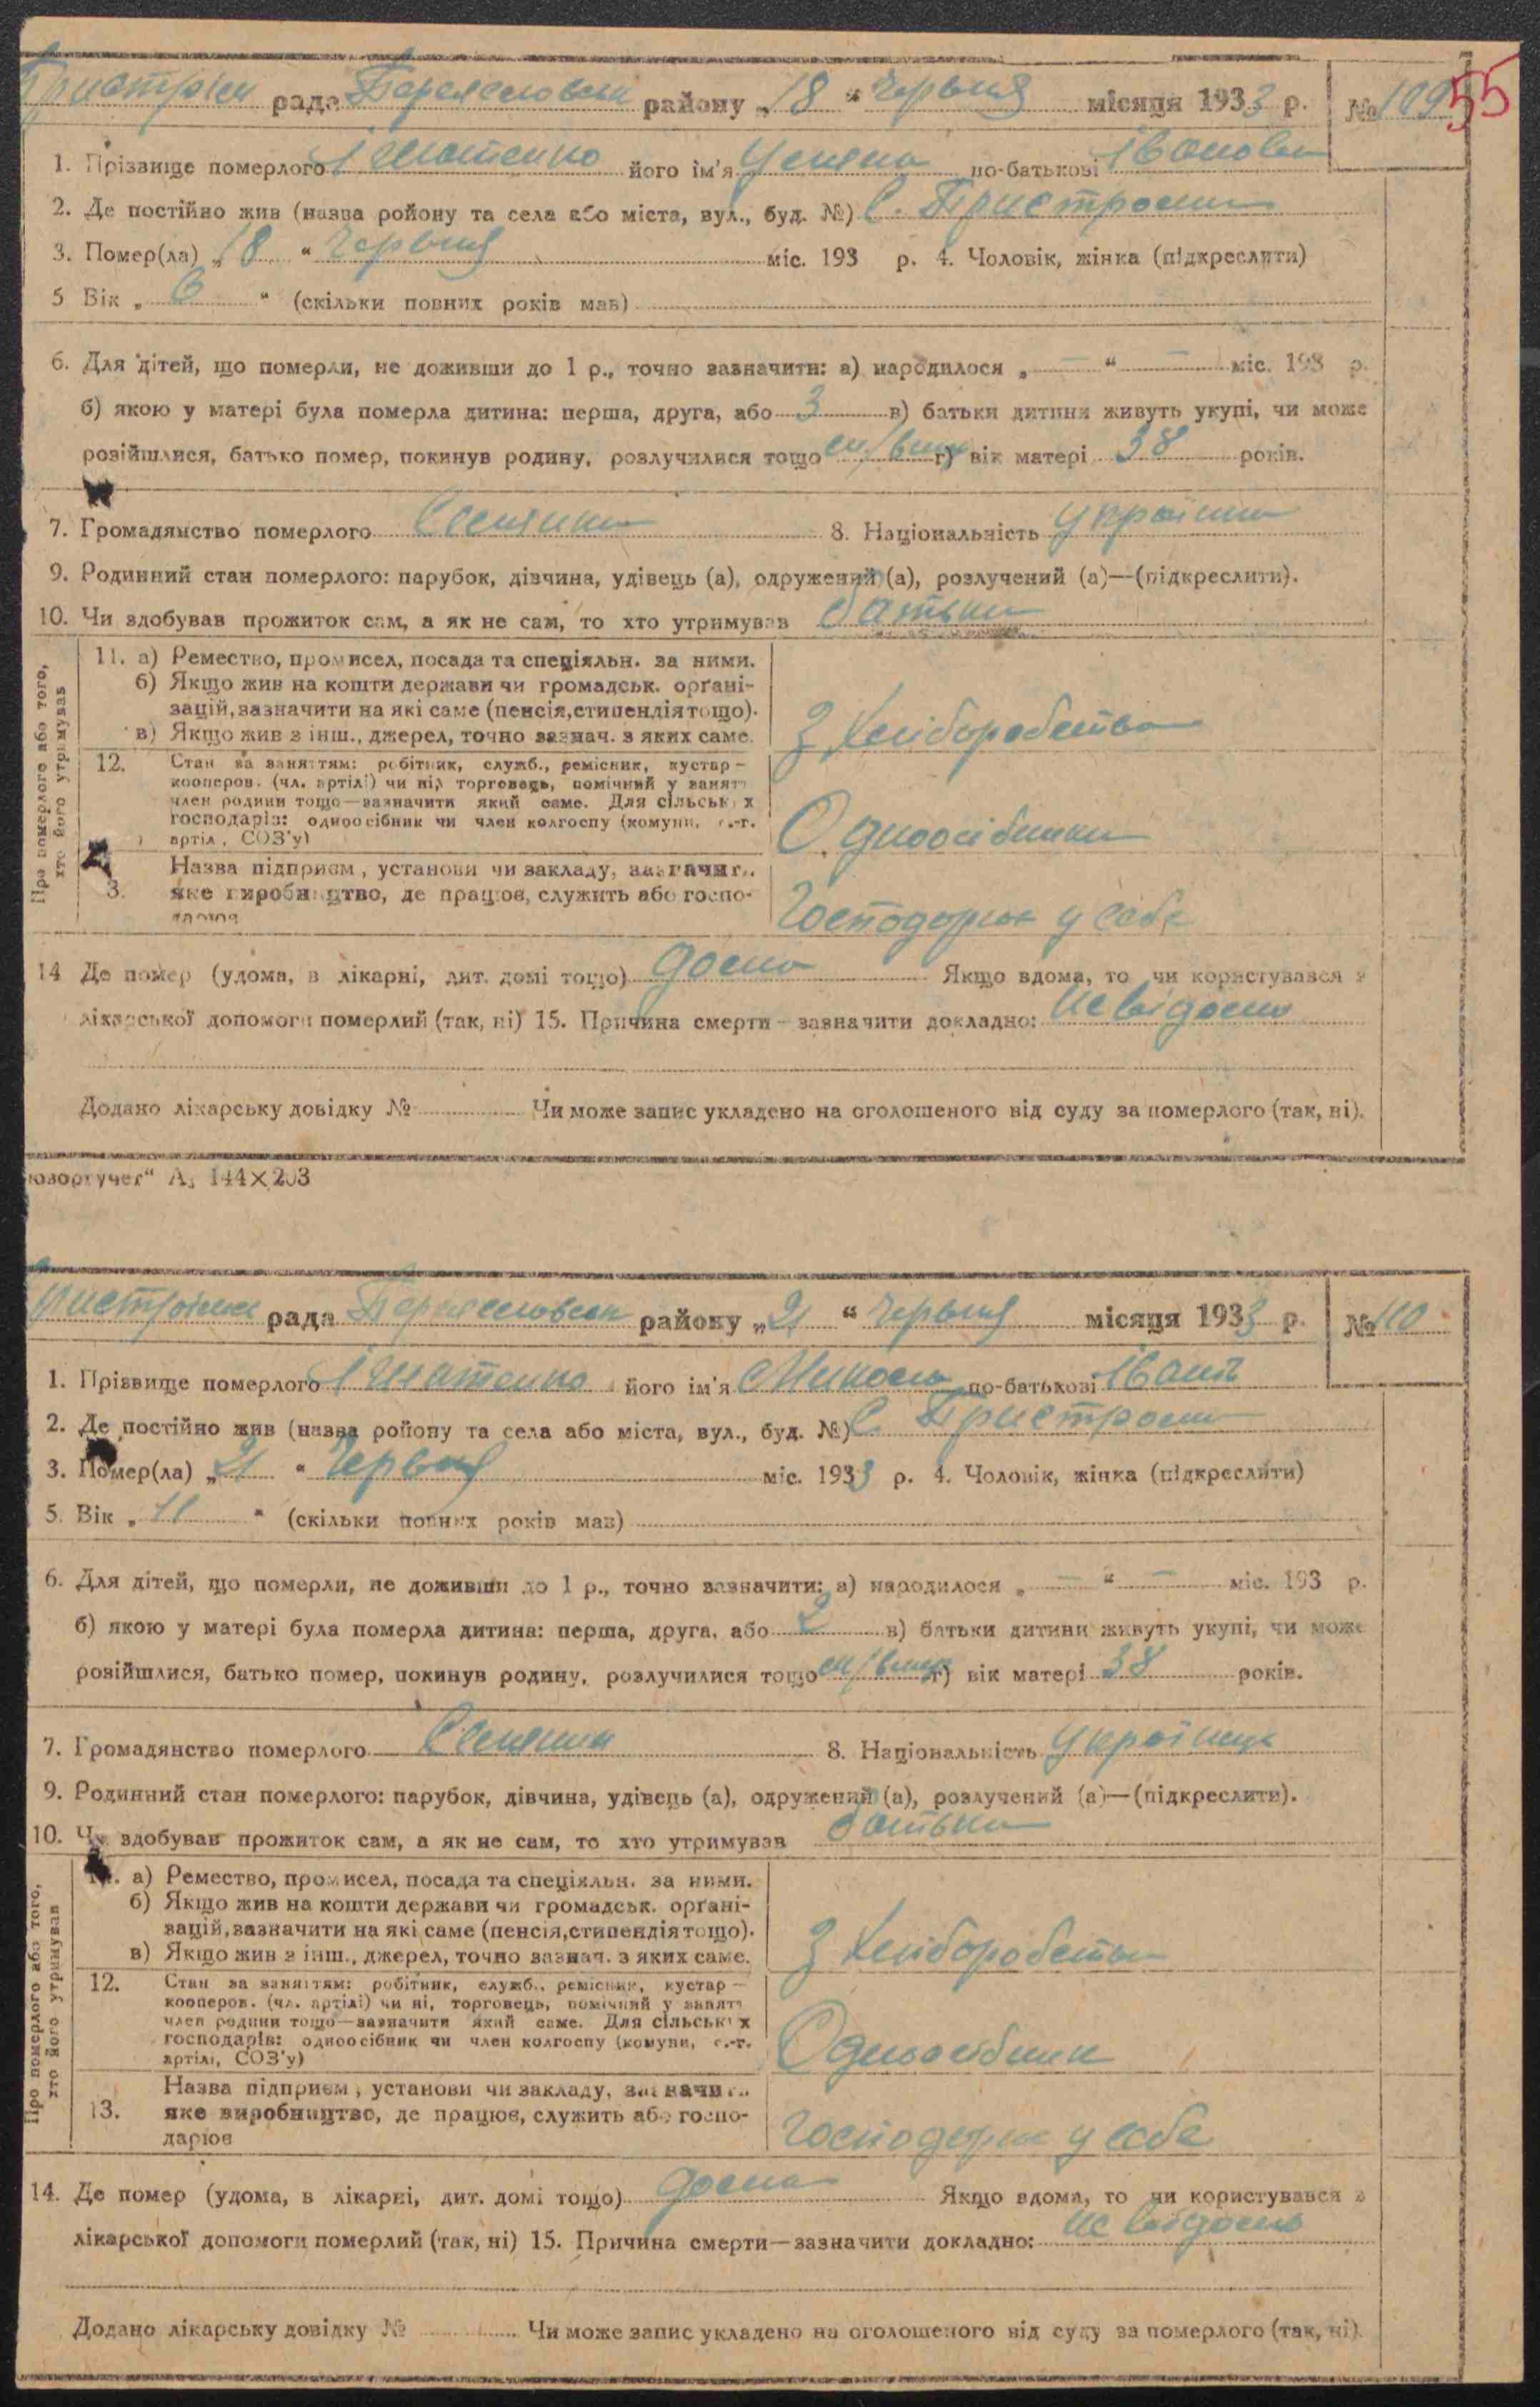 Пристрім рада Переяславськ району „18“ Червня місяця 1933 р. № 109 55
1. Прізвище померлого Ігнатенко його ім'я Уляна по-батькові Іванова
2. Де постійно жив (назва ройону та села або міста, вул., буд. №) С. Пристроми
3. Помер(ла) „18“ Червня міс. 193 р. 4. Чоловік, жінка (підкреслити)
5 Вік „6“ (скільки повних років мав)
6. Для дітей, що померли, не доживши до 1 р., точно зазначити: а) народилося „ — “ — міс. 193 р.
б) якою у матері була померла дитина: перша, друга, або 3 в) батьки дитини живуть укупі, чи може
розійшлися, батько помер, покинув родину, розлучилися тощо г) вік матері 38 років.
7. Громадянство померлого Селянка 8. Національність Українка
9. Родинний стан померлого: парубок, дівчина, удівець (а), одружений (а), розлучений (а)—(підкреслити).
10. Чи здобував прожиток сам, а як не сам, то хто утримував батьки
Про померлого або того,
хто його утримував
11. а) Ремество, промисел, посада та спеціяльн. за ними.
б) Якщо жив на кошти держави чи громадськ. орґані-
зацій, зазначити на які саме (пенсія, стипендія тощо).
в) Якщо жив з інш., джерел, точно зазнач. з яких саме.
З Хліборобства
12. Стан за заняттям: робітник, служб., ремісник, кустар —
кооперов. (чл. артілі) чи ні, торговець, помічний у занятт
член родини тощо—зазначити який саме. Для сільськ х
господарів: одноосібник чи член колгоспу (комуни, с.-г.
артіл, СОЗ'у)
Одноосібники
3. Назва підприєм, установи чи закладу, зазначит
яке виробництво, де працює, служить або госпо-
дарює
Господарює у себе
14 Де помер (удома, в лікарні, дит. домі тощо) дома Якщо вдома, то чи користувався з
лікарської допомоги померлий (так, ні) 15. Причина смерти — зазначити докладно: Невідомо
Додано лікарську довідку № Чи може запис укладено на оголошеного від суду за померлого (так, ні).
юзоргучет“ А₅ 144×203
Пристромск рада Переяславськ району „21“ Червня місяця 1933 р. № 110
1. Прізвище померлого Ігнатенко його ім'я Микола по-батькові Іван
2. Де постійно жив (назва ройону та села або міста, вул., буд. №) С. Пристроми
3. Помер(ла) „21“ Червня міс. 1933 р. 4. Чоловік, жінка (підкреслити)
5. Вік „11“ (скільки повних років мав)
6. Для дітей, що померли, не доживши до 1 р., точно зазначити: а) народилося „ — “ — міс. 193 р.
б) якою у матері була померла дитина: перша, друга, або 2 в) батьки дитини живуть укупі, чи може
розійшлися, батько помер, покинув родину, розлучилися тощо г) вік матері 38 років.
7. Громадянство померлого Селянин 8. Національність Українець
9. Родинний стан померлого: парубок, дівчина, удівець (а), одружений (а), розлучений (а)—(підкреслити).
10. Чи здобував прожиток сам, а як не сам, то хто утримував батьки
Про померлого або того,
хто його утримував
а) Ремество, промисел, посада та спеціяльн. за ними.
б) Якщо жив на кошти держави чи громадськ. орґані-
зацій, зазначити на які саме (пенсія, стипендія тощо).
в) Якщо жив з інш., джерел, точно зазнач. з яких саме.
З Хліборобства
12. Стан за заняттям: робітник, служб., ремісник, кустар —
кооперов. (чл. артілі) чи ні, торговець, помічний у занятт
член родини тощо—зазначити який саме. Для сільськ х
господарів: одноосібник чи член колгоспу (комуни, с.-г.
артілі, СОЗ'у)
Одноосібник
13. Назва підприєм, установи чи закладу, зазначит
яке виробництво, де працює, служить або госпо-
дарює
Господарює у себе
14. Де помер (удома, в лікарні, дит. домі тощо) дома Якщо вдома, то чи користувався з
лікарської допомоги померлий (так, ні) 15. Причина смерти—зазначити докладно: не відомо
Додано лікарську довідку № Чи може запис укладено на оголошеного від суду за померлого (так, ні)